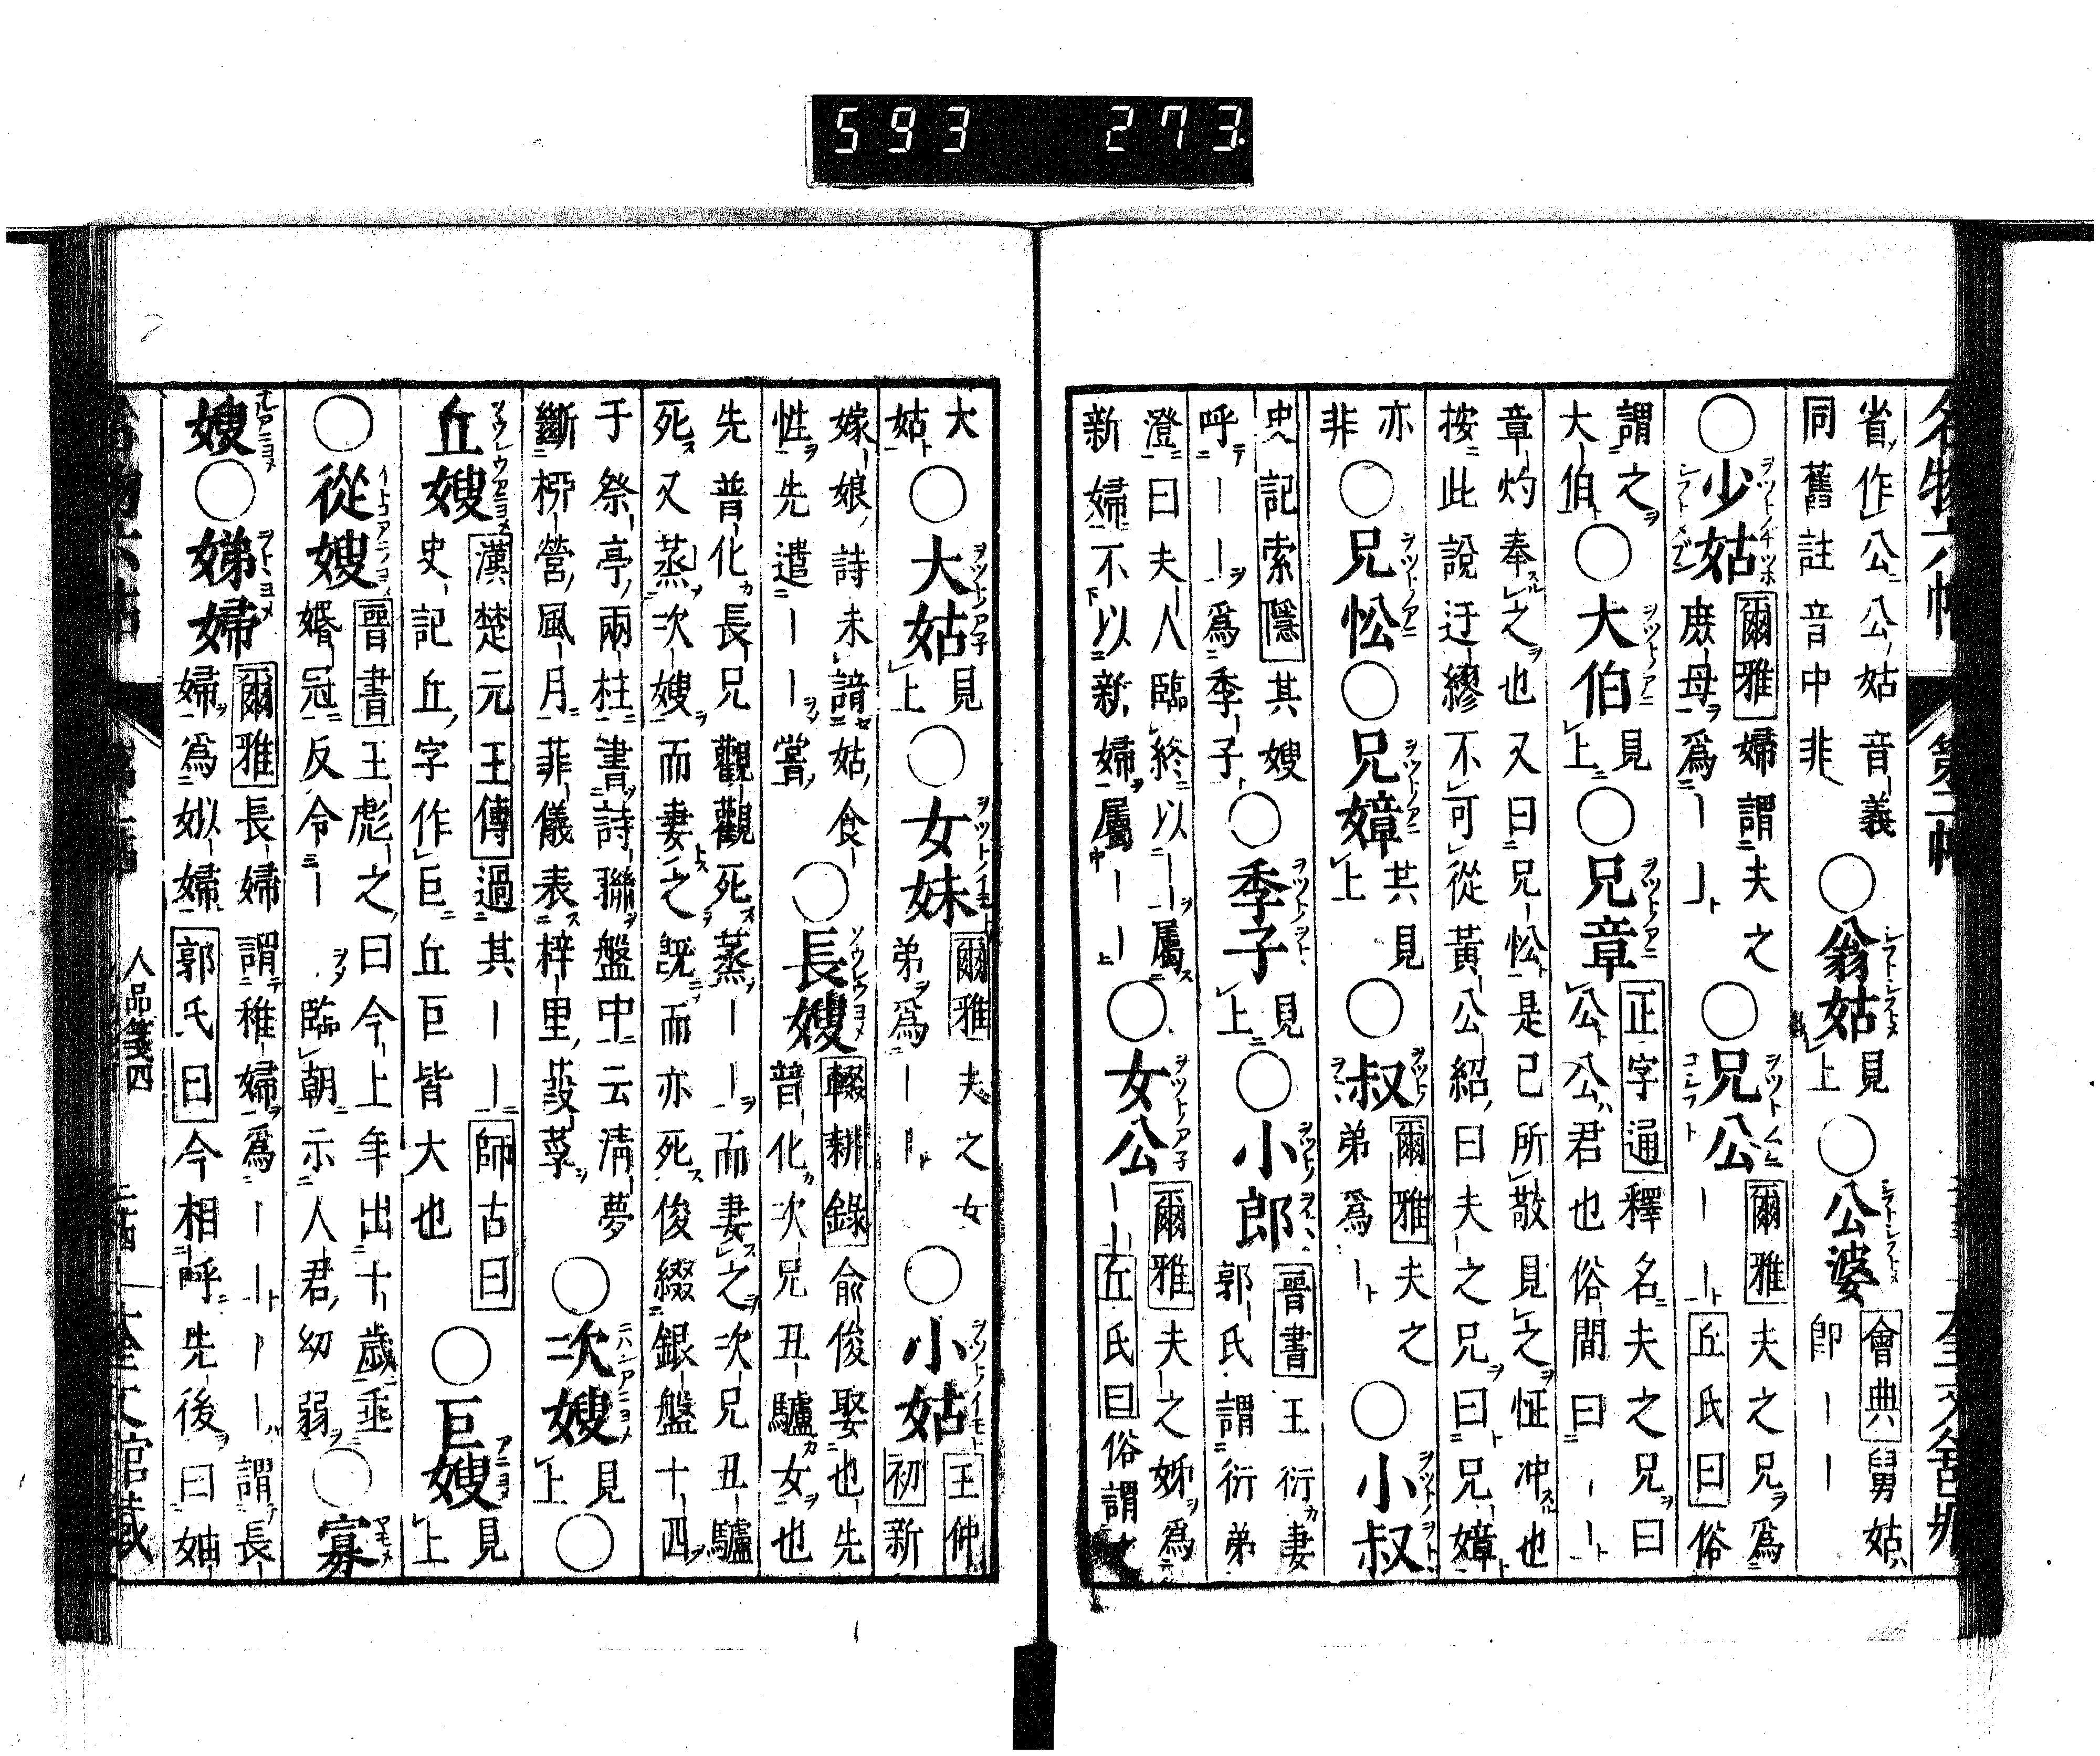 593 273
省作公公姑音義
同舊註音中非
○翁姑
見
上
○公婆
會典舅姑
卽——
○少姑
爾雅婦謂夫之
庶母爲——
○兄公
爾雅夫之兄爲
——丘氏曰俗
謂之
大伯
○大伯
見
上
○兄章
正字通釋名夫之兄曰
公公君也俗間曰——
章灼奉之也又曰兄忪是已所敬見之怔冲也
按此說迂繆不可從黃公紹曰夫之兄曰兄嫜
亦
非
○兄忪○兄嫜
共見
上
○叔
爾雅夫之
弟爲—
○小叔
史記索隱其嫂
呼——爲季子
○季子
見
上
○小郎
晉書王衍妻
郭氏謂衍弟
澄曰夫人臨終以——屬
新婦不以新婦屬——
○女公
爾雅夫之姊爲
——丘氏曰俗謂之
大
姑
○大姑
見
上
○女妹
爾雅夫之女
弟爲——
○小姑
王仲初新
嫁娘詩未諳姑食
性先遣——嘗
○長嫂
輟耕錄俞俊娶也先
普化次兄丑驢女也
先普化長兄觀觀死蒸——而妻之次兄丑驢
死又蒸次嫂而妻之旣而亦死俊綴銀盤十四
于祭亭兩柱書詩聯盤中云淸夢
斷栁營風月菲儀表梓里葭莩
○次嫂
見
上
○
丘嫂
漢楚元王傳過其——師古曰
史記丘字作巨丘巨皆大也
○巨嫂
見
上
○從嫂
晉書王彪之曰今上年出十歲垂
婚冠反令—臨朝示人君幼弱
○寡
嫂○娣婦
爾雅長婦謂稚婦爲————謂長
婦爲姒婦郭氏曰今相呼先後曰妯
人品箋四